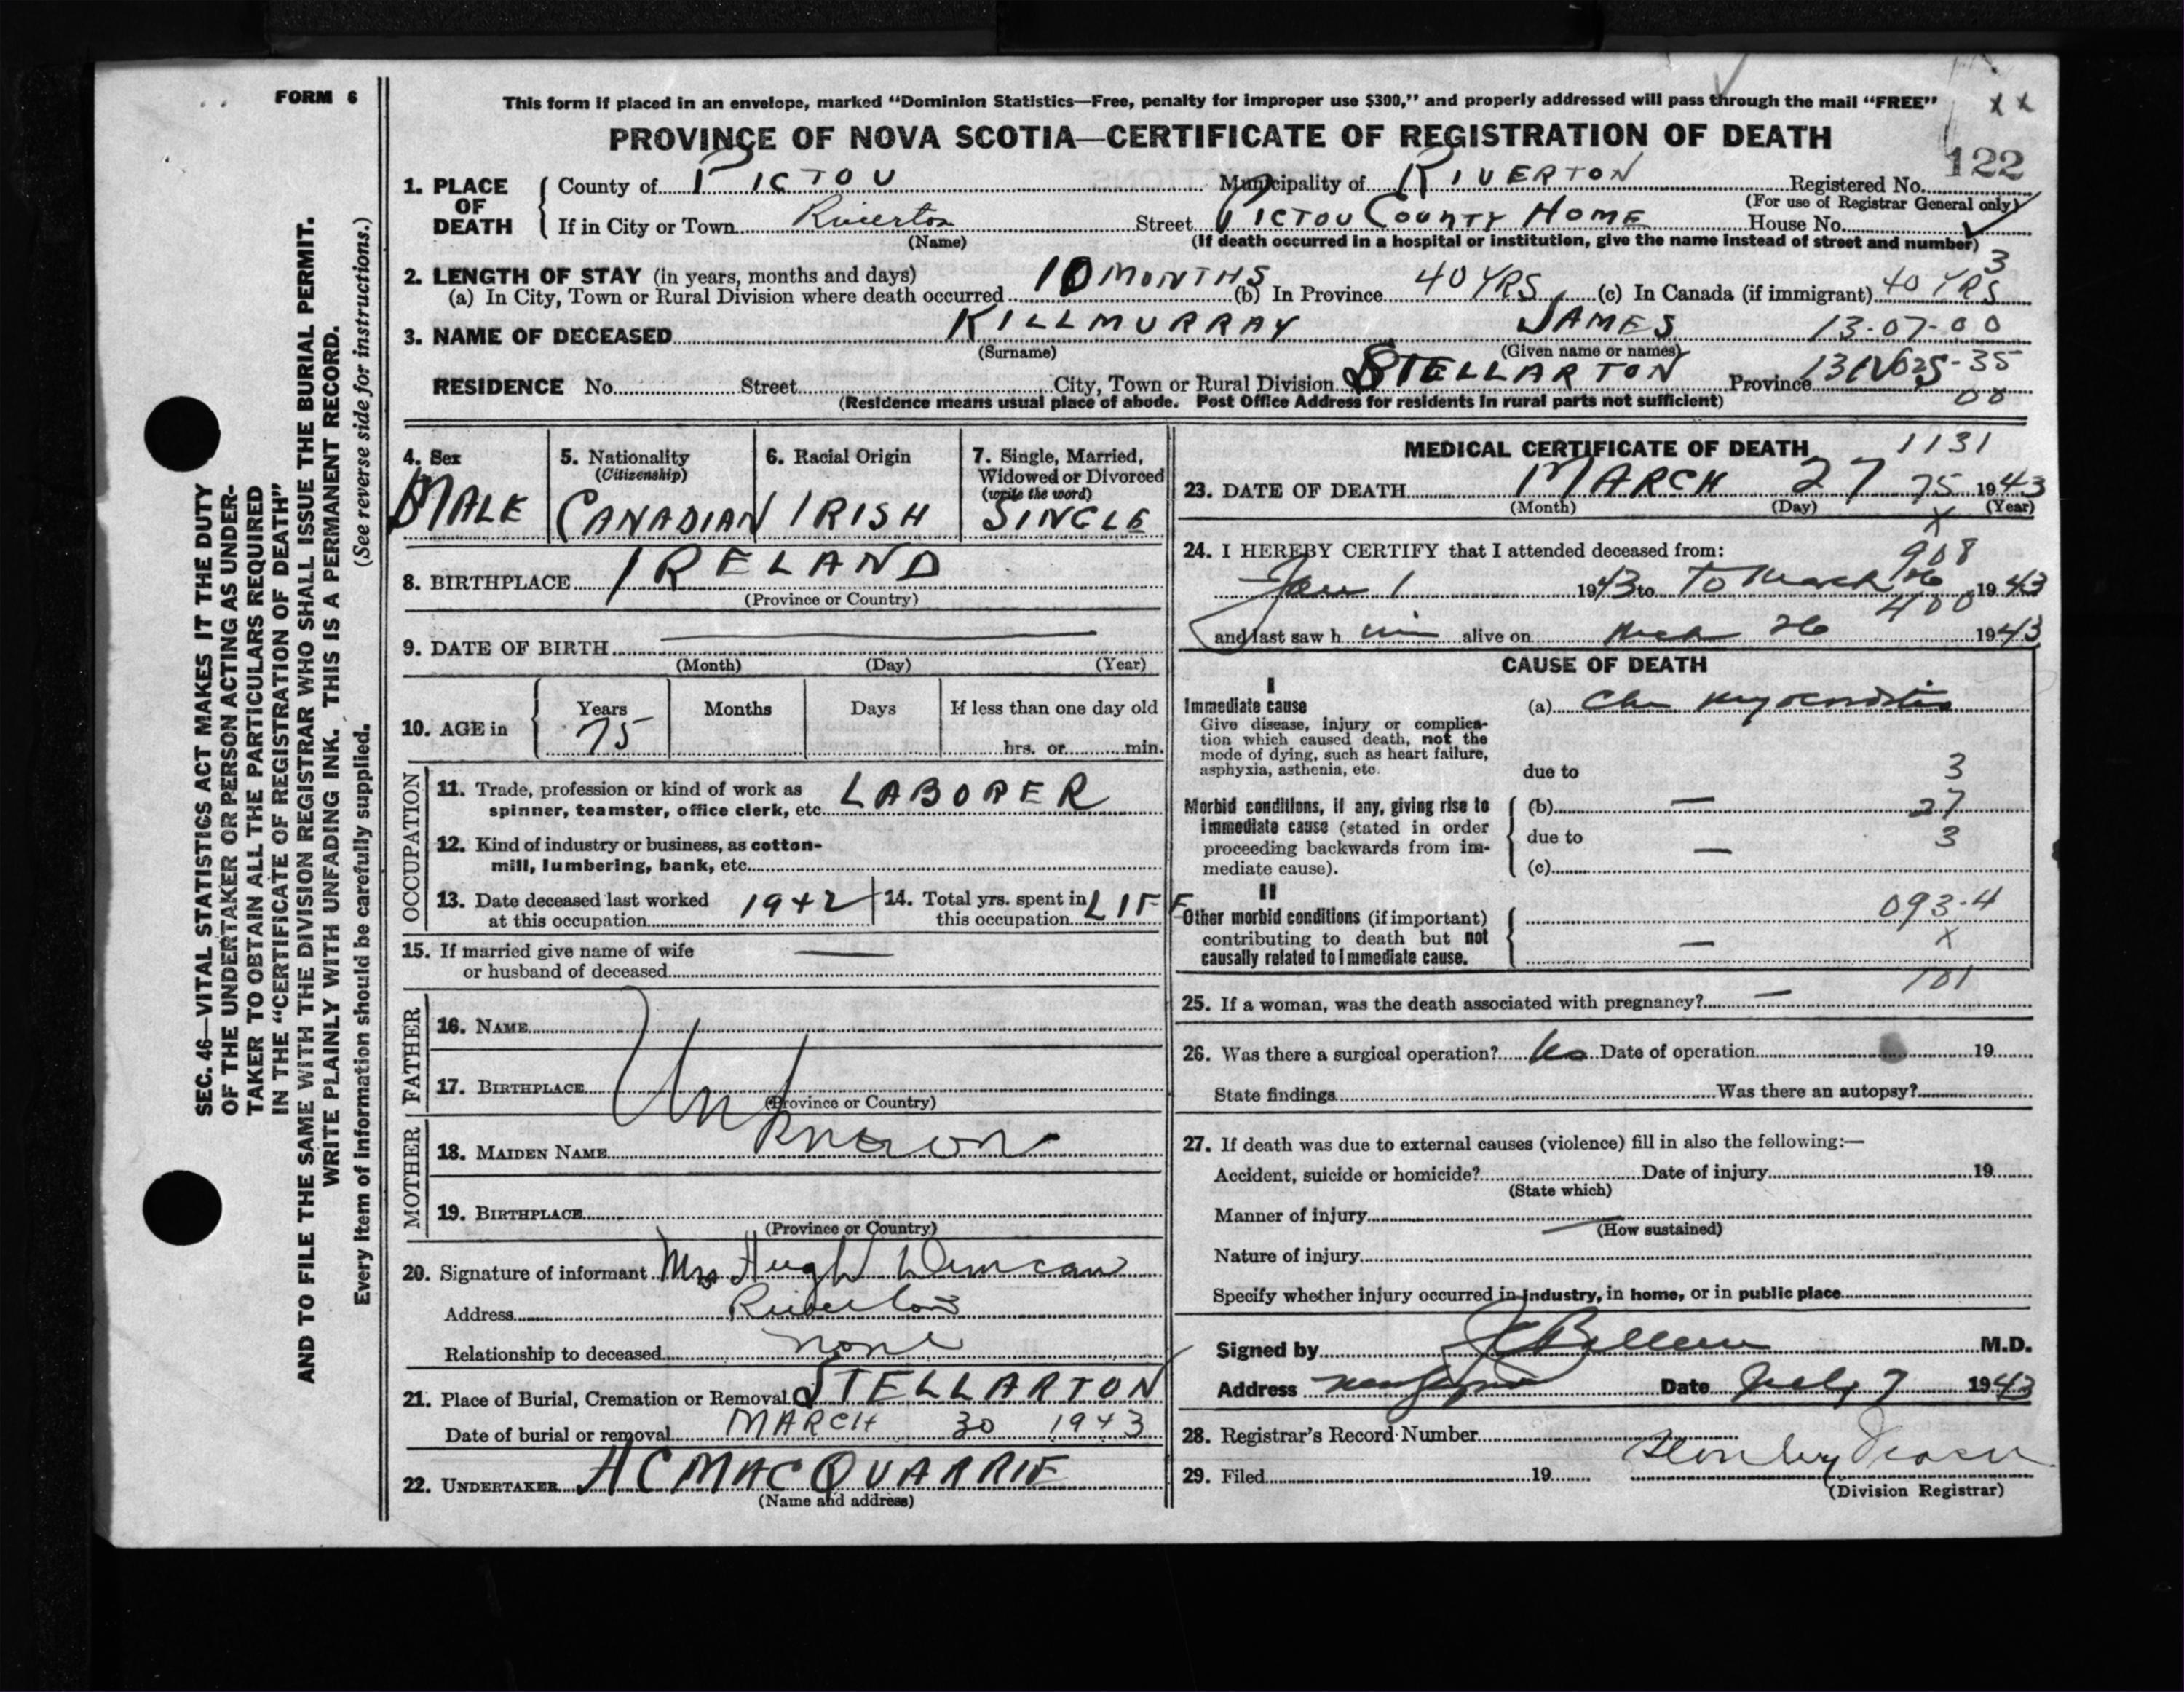 FORM 6
SEC. 46—VITAL STATISTICS ACT MAKES IT THE DUTY
OF THE UNDERTAKER OR PERSON ACTING AS UNDER-
TAKER TO OBTAIN ALL THE PARTICULARS REQUIRED
IN THE "CERTIFICATE OF REGISTRATION OF DEATH"
AND TO FILE THE SAME WITH THE DIVISION REGISTRAR WHO SHALL ISSUE THE BURIAL PERMIT.
WRITE PLAINLY WITH UNFADING INK. THIS IS A PERMANENT RECORD.
Every item of information should be carefully supplied. (See reverse side for instructions.)
This form if placed in an envelope, marked "Dominion Statistics—Free, penalty for improper use $300," and properly addressed will pass through the mail "FREE" x x
PROVINCE OF NOVA SCOTIA—CERTIFICATE OF REGISTRATION OF DEATH
122
1. PLACE OF DEATH County of PICTOU Municipality of RIVERTON Registered No.
(For use of Registrar General only)
If in City or Town Riverton Street PICTOU COUNTY HOME House No.
(Name) (If death occurred in a hospital or institution, give the name instead of street and number)
3
2. LENGTH OF STAY (in years, months and days)
(a) In City, Town or Rural Division where death occurred 10 MONTHS (b) In Province 40 YRS (c) In Canada (if immigrant) 40 YRS
3. NAME OF DECEASED KILLMURRAY JAMES 13-07-00
(Surname) (Given name or names)
RESIDENCE No. Street City, Town or Rural Division STELLARTON Province
(Residence means usual place of abode. Post Office Address for residents in rural parts not sufficient) 00
4. Sex
MALE
5. Nationality
(Citizenship)
CANADIAN
6. Racial Origin
IRISH
7. Single, Married,
Widowed or Divorced
(write the word)
SINGLE
8. BIRTHPLACE IRELAND
(Province or Country)
9. DATE OF BIRTH
(Month) (Day) (Year)
10. AGE in Years Months Days If less than one day old
75 hrs. or min.
OCCUPATION
11. Trade, profession or kind of work as
spinner, teamster, office clerk, etc. LABORER
12. Kind of industry or business, as cotton-
mill, lumbering, bank, etc.
13. Date deceased last worked
at this occupation 1942
14. Total yrs. spent in
this occupation LIFE
15. If married give name of wife
or husband of deceased —
FATHER
16. NAME
17. BIRTHPLACE
(Province or Country)
Unknown
MOTHER
18. MAIDEN NAME
19. BIRTHPLACE
(Province or Country)
20. Signature of informant Mrs Hugh Duncan
Address Riverton
Relationship to deceased none
21. Place of Burial, Cremation or Removal STELLARTON
Date of burial or removal MARCH 30 1943
22. UNDERTAKER AC MACQUARRIE
(Name and address)
MEDICAL CERTIFICATE OF DEATH 1131
23. DATE OF DEATH MARCH 27 75 1943
(Month) (Day) (Year)
x
24. I HEREBY CERTIFY that I attended deceased from: 908
Jan 1 1943 to To March 26 1943
400
and last saw him alive on Mch 26 1943
CAUSE OF DEATH
I
Immediate cause
Give disease, injury or complica-
tion which caused death, not the
mode of dying, such as heart failure,
asphyxia, asthenia, etc.
(a) Chr myocarditis
due to 3
Morbid conditions, if any, giving rise to
immediate cause (stated in order
proceeding backwards from im-
mediate cause).
(b) — 27
due to 3
(c) —
II
Other morbid conditions (if important)
contributing to death but not
causally related to immediate cause.
093-4
— x
101
25. If a woman, was the death associated with pregnancy? —
26. Was there a surgical operation? No Date of operation 19
State findings Was there an autopsy?
27. If death was due to external causes (violence) fill in also the following:—
Accident, suicide or homicide? Date of injury 19
(State which)
Manner of injury
(How sustained)
Nature of injury
Specify whether injury occurred in industry, in home, or in public place
Signed by M.D.
Address Date July 7 1943
28. Registrar's Record Number
29. Filed 19
(Division Registrar)